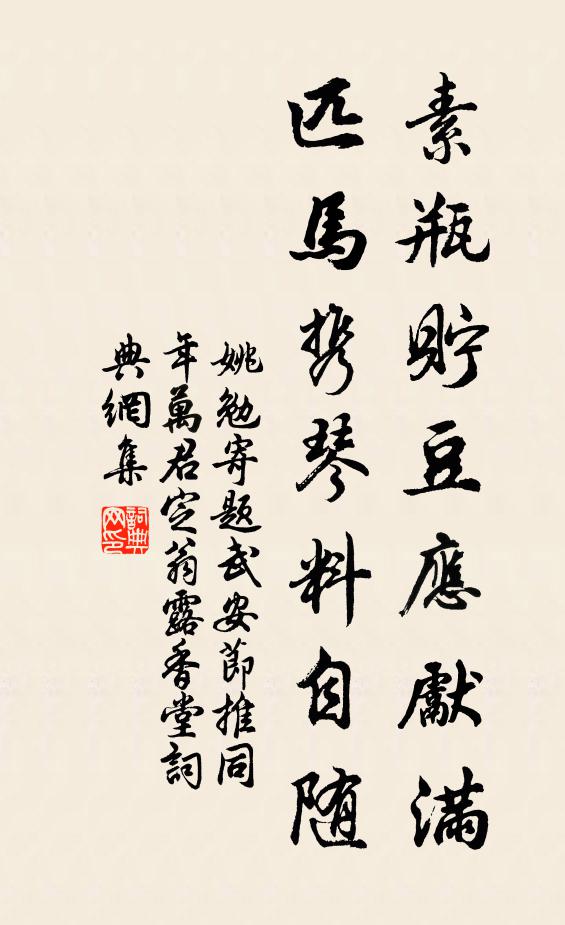 素瓶貯豆應獻滿
匹馬携琴料自随
姚勉寄题武安節推同
年萬君定翁露香堂詞
典網集
詞典网印